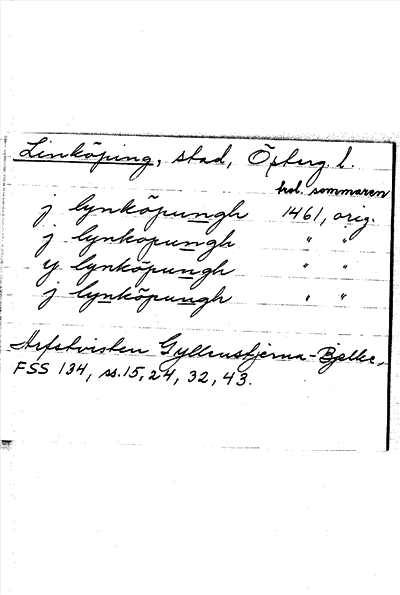 Linköping, stad, Östergl.
trol. sommaren
j lynköpungh 1461, orig.
j lynkopungh " "
y lynköpungh " "
j lynköpungh " "
Arfstvisten Gyllenstjerna-Bjelke,
FSS 134, ss. 15, 24, 32, 43.